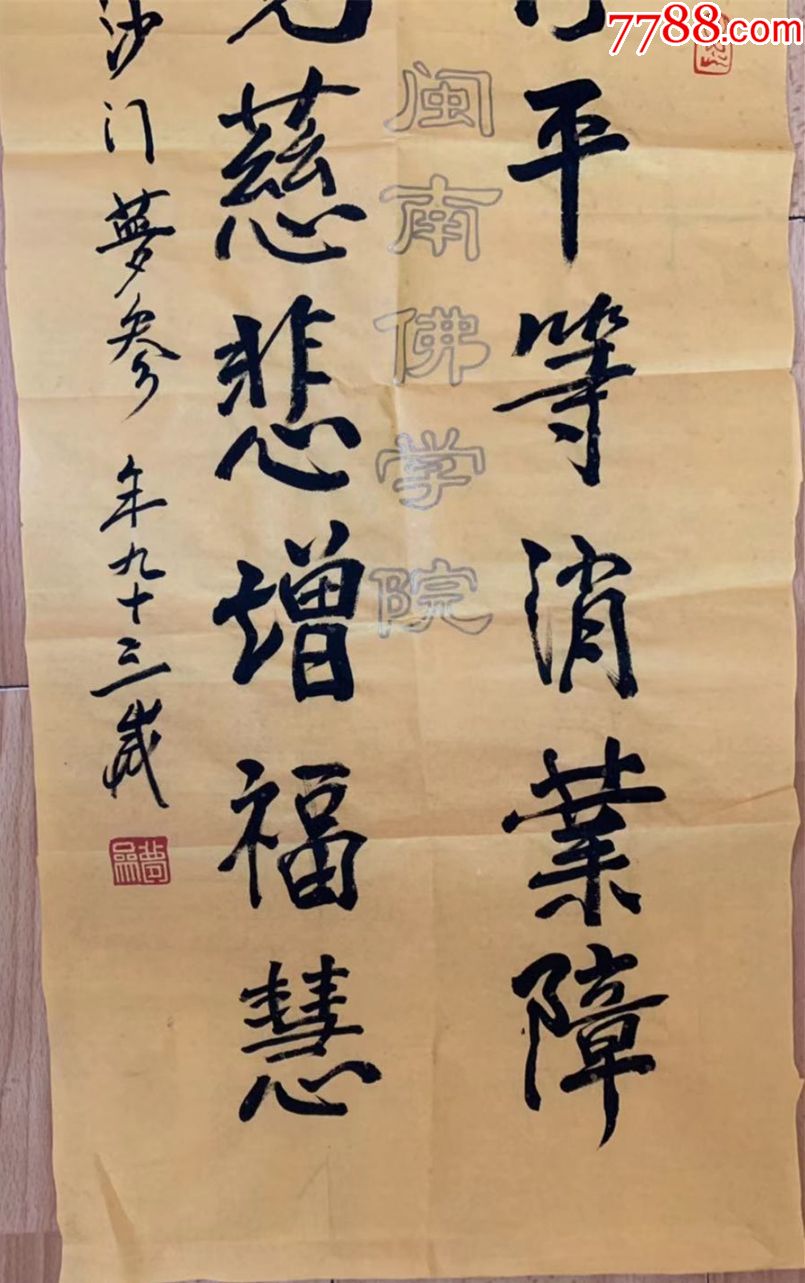 7788.com
平等消業障
闽南佛学院
慈悲增福慧
沙门夢參 年九十三歲